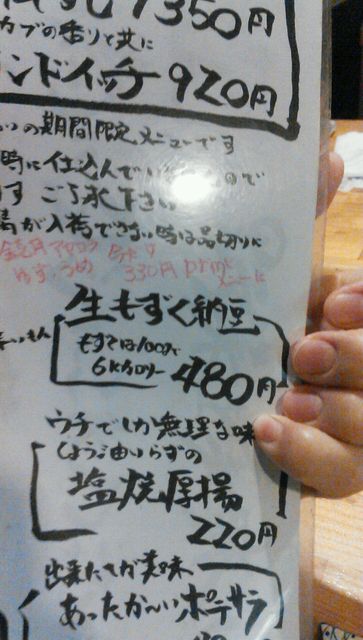 350円
カブの香りと共に
ンドイッチ 920円
の期間限定メニューです
時に仕込んでい ので
す ご了承下さい
が入荷できない時は品切りに
330円
メニューに
生もずく納豆
もずくは100gで
6kカロリー 480円
ウチでしか無理な味
しょう油いらずの
塩焼厚揚
220円
出来たちが美味
あったか〜いポテサラ